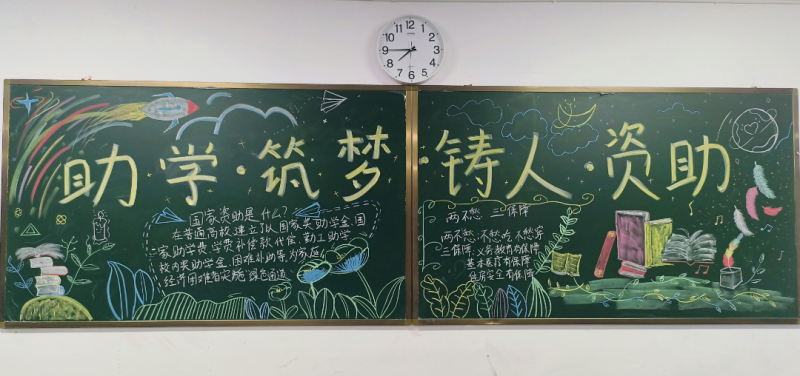 助学·筑梦·铸人·资助
国家资助是什么?
在普通高校建立了以国家奖助学金、国
家助学贷、学费补偿贷款代偿、勤工助学
校内奖助学金、困难补助等为家庭
经济困难者实施 绿色通道
两不愁 三保障
两不愁:不愁吃、不愁穿
三保障:义务教育有保障
基本医疗有保障
住房安全有保障
12
1
2
3
4
5
6
7
8
9
10
11